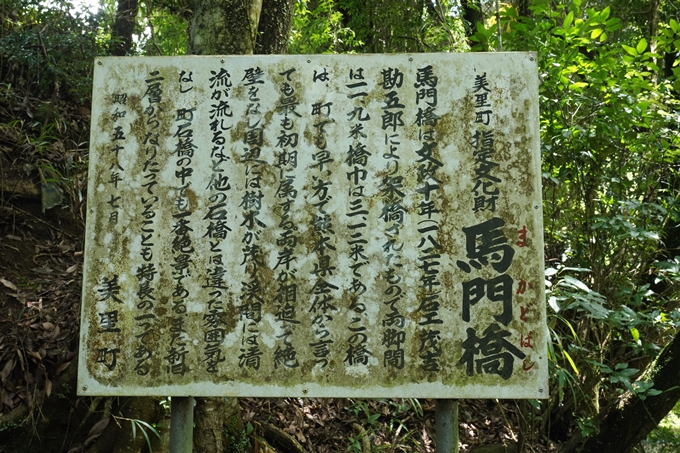 美里町 指定文化財 馬門橋
まかどばし
馬門橋は文政十年(一八二七年)石工茂吉
勘五郎により架橋されたもので両脚間
は一一、九米橋巾は三、一三米である、この橋
は、町でも早い方で熊本県全体から言っ
ても最も初期に属する両岸が相迫って絶
壁をなし周辺には樹木が茂り渓間には清
流が流れるなど他の石橋とは違った雰囲気を
なし町石橋の中でも一番絶景である、また新旧
二層からなりたっていることも特長の一つである
昭和五十八年七月 美里町